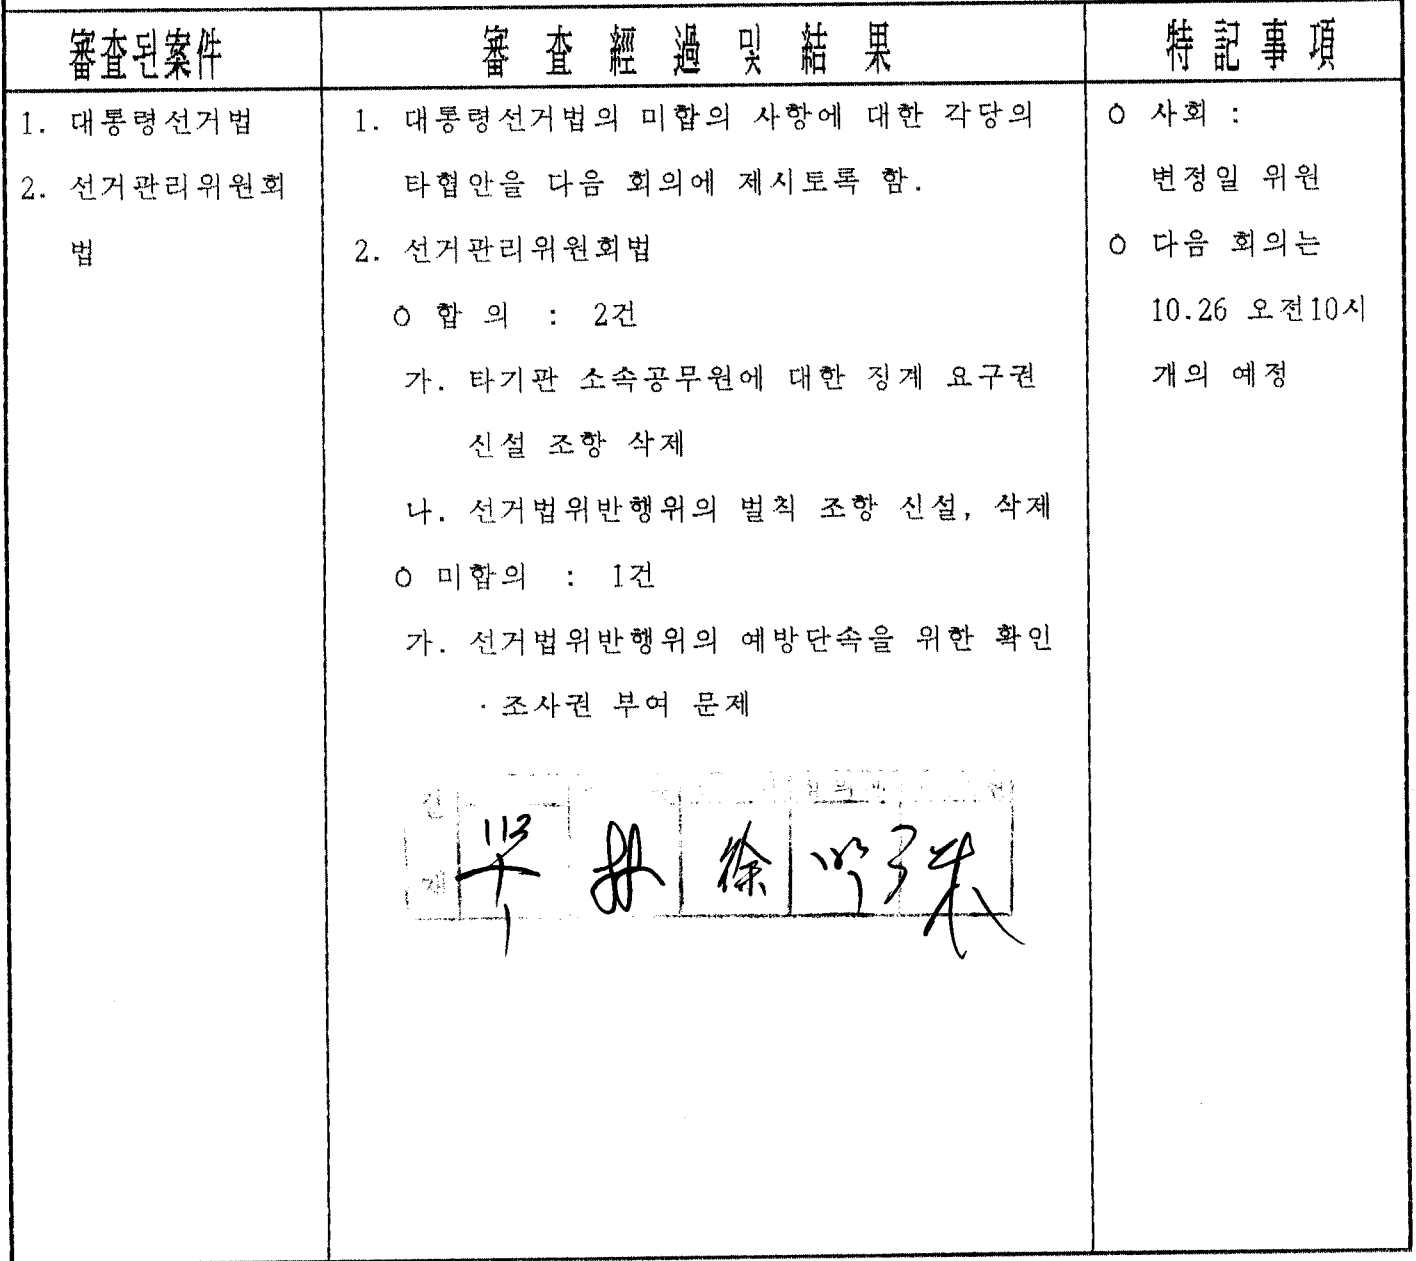 審査된案件
1. 대통령선거법
2. 선거관리위원회
법
審査經過및結果
1. 대통령선거법의 미합의 사항에 대한 각당의
타협안을 다음 회의에 제시토록 함.
2. 선거관리위원회법
ㅇ 합 의 : 2건
가. 타기관 소속공무원에 대한 징계 요구권
신설 조항 삭제
나. 선거법위반행위의 벌칙 조항 신설, 삭제
ㅇ 미합의 : 1건
가. 선거법위반행위의 예방단속을 위한 확인
· 조사권 부여 문제
徐
特記事項
ㅇ 사회 :
변정일 위원
ㅇ 다음 회의는
10.26 오전10시
개의 예정